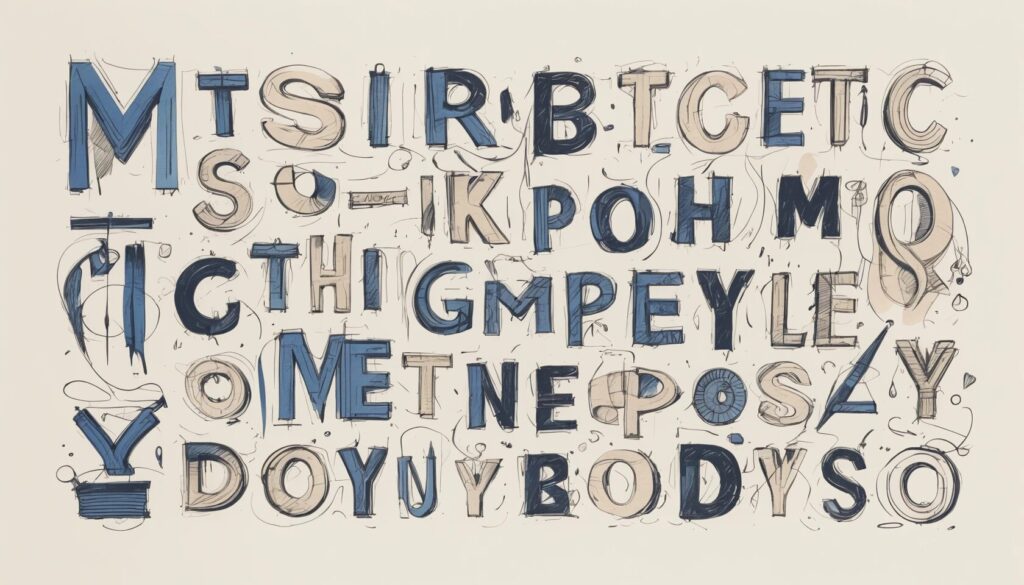 MTSIRBTCETC
S IK POHM
CTHI GMPEYLE
OMET NEPOS Y
Y DOYUYBODYSO